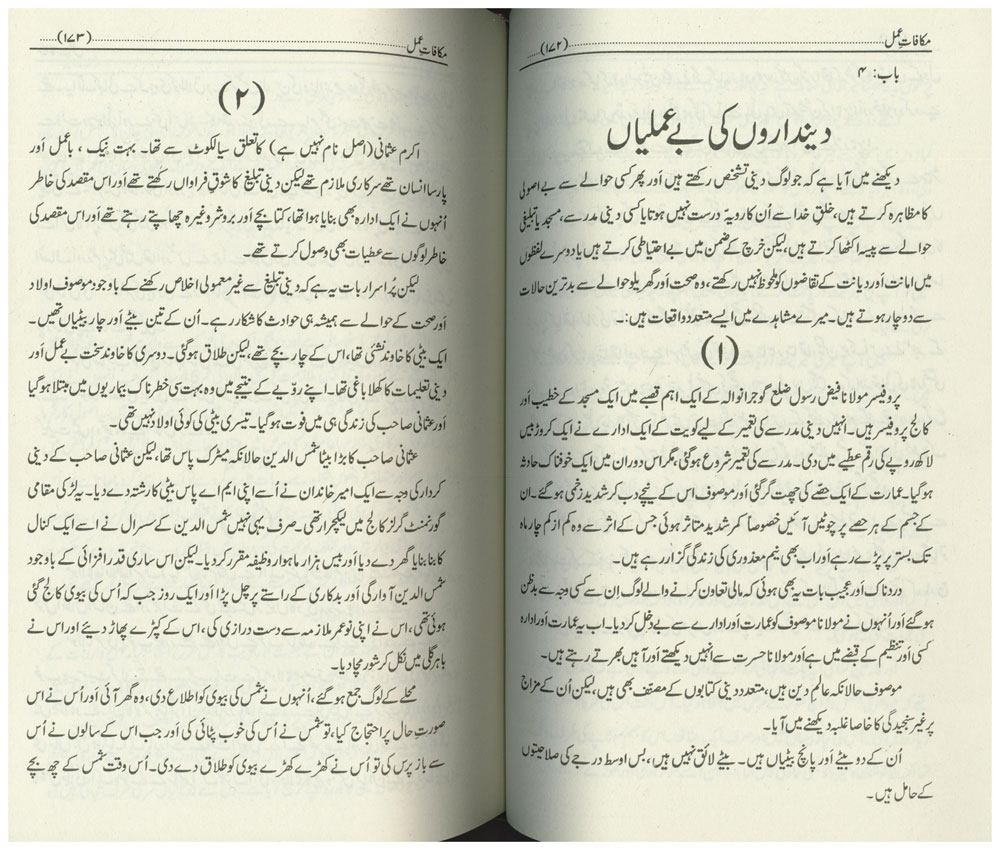 مکافاتِ عمل (۱۷۲)
باب: ۴
دینداروں کی بے عملیاں
دیکھنے میں آیا ہے کہ جو لوگ دینی تشخص رکھتے ہیں اَور پھر کسی حوالے سے بے اصولی
کا مظاہرہ کرتے ہیں، خلقِ خدا سے اُن کا رویہ درست نہیں ہوتا یا کسی دینی مدرسے، مسجد یا تبلیغی
حوالے سے پیسہ اکٹھا کرتے ہیں، لیکن خرچ کے ضمن میں بے احتیاطی کرتے ہیں یا دوسرے لفظوں
میں امانت اَور دیانت کے تقاضوں کو ملحوظ نہیں رکھتے، وہ صحت اَور گھریلو حوالے سے بدترین حالات
سے دوچار ہوتے ہیں۔ میرے مشاہدے میں ایسے متعدد واقعات ہیں:۔
(۱)
پروفیسر مولانا فیض رسول ضلع گوجرانوالہ کے ایک اہم قصبے میں ایک مسجد کے خطیب اَور
کالج پروفیسر ہیں۔ انہیں دینی مدرسے کی تعمیر کے لیے کویت کے ایک ادارے نے ایک کروڑ بیس
لاکھ روپے کی رقم عطیے میں دی۔ مدرسے کی تعمیر شروع ہوگئی، مگر اس دوران میں ایک خوفناک حادثہ
ہوگیا۔ عمارت کے ایک حصّے کی چھت گر گئی اَور موصوف اس کے نیچے دب کر شدید زخمی ہوگئے۔ ان
کے جسم کے ہر حصے پر چوٹیں آئیں خصوصاً کمر شدید متاثر ہوئی جس کے اثر سے وہ کم از کم چار ماہ
تک بستر پر پڑے رہے اَور اب بھی نیم معذوری کی زندگی گزار رہے ہیں۔
دردناک اَور عجیب بات یہ بھی ہوئی کہ مالی تعاون کرنے والے لوگ اِن سے کسی وجہ سے بدظن
ہوگئے اَور اُنہوں نے مولانا موصوف کو عمارت اَور ادارے سے بے دخل کردیا۔ اب یہ عمارت اَور ادارہ
کسی اَور تنظیم کے قبضے میں ہے اَور مولانا حسرت سے انہیں دیکھتے اَور آہیں بھرتے رہتے ہیں۔
موصوف حالانکہ عالمِ دین ہیں، متعدد دینی کتابوں کے مصنف بھی ہیں، لیکن اُن کے مزاج
پر غیر سنجیدگی کا خاصا غلبہ دیکھنے میں آیا۔
اُن کے دو بیٹے اَور پانچ بیٹیاں ہیں۔ بیٹے لائق نہیں ہیں، بس اوسط درجے کی صلاحیتوں
کے حامل ہیں۔
مکافاتِ عمل (۱۷۳)
(۲)
اکرم عثمانی (اصل نام نہیں ہے) کا تعلق سیالکوٹ سے تھا۔ بہت نیک، باعمل اَور
پارسا انسان تھے سرکاری ملازم تھے لیکن دینی تبلیغ کا شوق فراواں رکھتے تھے اَور اس مقصد کی خاطر
اُنہوں نے ایک ادارہ بھی بنایا ہوا تھا، کتابچے اَور بروشر وغیرہ چھاپتے رہتے تھے اَور اس مقصد کی
خاطر لوگوں سے عطیات بھی وصول کرتے تھے۔
لیکن پُراسرار بات یہ ہے کہ دینی تبلیغ سے غیر معمولی اخلاص رکھنے کے باوجود موصوف اولاد
اَور صحت کے حوالے سے ہمیشہ ہی حوادث کا شکار رہے۔ اُن کے تین بیٹے اَور چار بیٹیاں تھیں۔
ایک بیٹی کا خاوند نشئی تھا، اس کے چار بچے تھے، لیکن طلاق ہوگئی۔ دوسری کا خاوند سخت بے عمل اَور
دینی تعلیمات کا کھلا باغی تھا۔ اپنے رویّے کے نتیجے میں وہ بہت سی خطرناک بیماریوں میں مبتلا ہوگیا
اَور عثمانی صاحب کی زندگی ہی میں فوت ہوگیا۔ تیسری بیٹی کی کوئی اولاد نہیں تھی۔
عثمانی صاحب کا بڑا بیٹا شمس الدین حالانکہ میٹرک پاس تھا، لیکن عثمانی صاحب کے دینی
کردار کی وجہ سے ایک امیر خاندان نے اُسے اپنی ایم اے پاس بیٹی کا رشتہ دے دیا۔ یہ لڑکی مقامی
گورنمنٹ گرلز کالج میں لیکچرار تھی۔ صرف یہی نہیں شمس الدین کے سسرال نے اسے ایک کنال
کا بنا بنایا گھر دے دیا اَور بیس ہزار ماہوار وظیفہ مقرر کردیا۔ لیکن اس ساری قدر افزائی کے باوجود
شمس الدین آوارگی اَور بدکاری کے راستے پر چل پڑا اَور ایک روز جب کہ اُس کی بیوی کالج گئی
ہوئی تھی، اس نے اپنی نوعمر ملازمہ سے دست درازی کی، اس کے کپڑے پھاڑ دیئے اَور اس نے
باہر گلی میں نکل کر شور مچا دیا۔
محلے کے لوگ جمع ہوگئے، اُنہوں نے شمس کی بیوی کو اطلاع دی، وہ گھر آئی اَور اُس نے اس
صورتِ حال پر احتجاج کیا، تو شمس نے اُس کی خوب پٹائی کی اَور جب اس کے سالوں نے اُس
سے باز پرس کی تو اُس نے کھڑے کھڑے بیوی کو طلاق دے دی۔ اُس وقت شمس کے چھ بچے